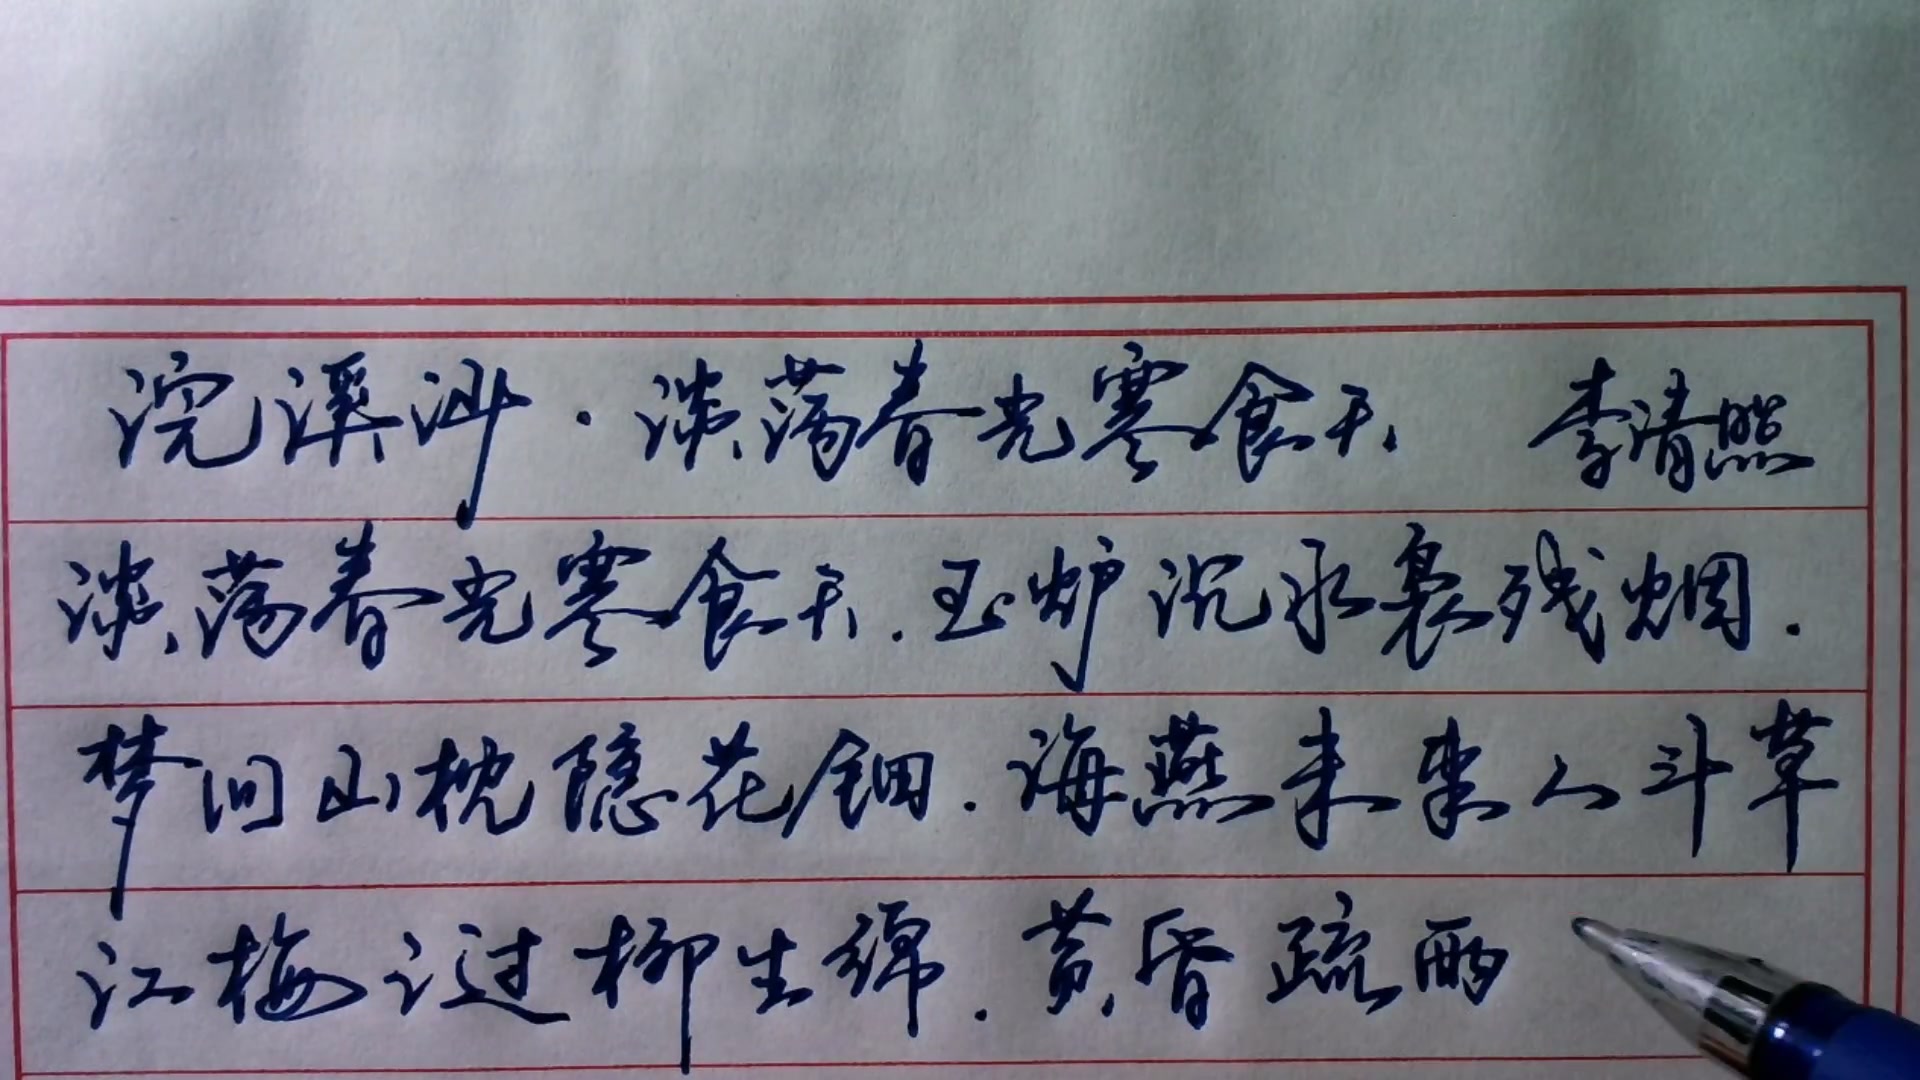 浣溪沙·淡荡春光寒食天 李清照
淡荡春光寒食天.玉炉沉水袅残烟.
梦回山枕隐花钿.海燕未来人斗草
江梅已过柳生绵.黄昏疏雨